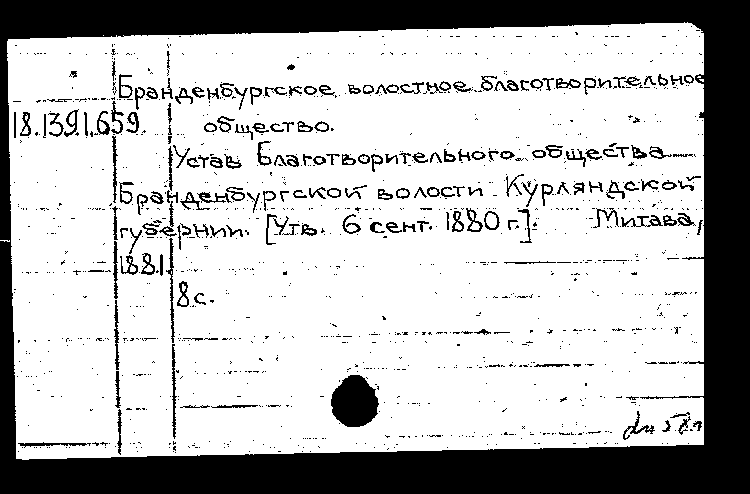 Бранденбургское волостное благотворительное
18.139.1.659. общество.
Устав Благотворительного общества
Бранденбургской волости Курляндской
губернии. [Утв. 6 сент. 1880 г.]. Митава,
1881.
8 с.